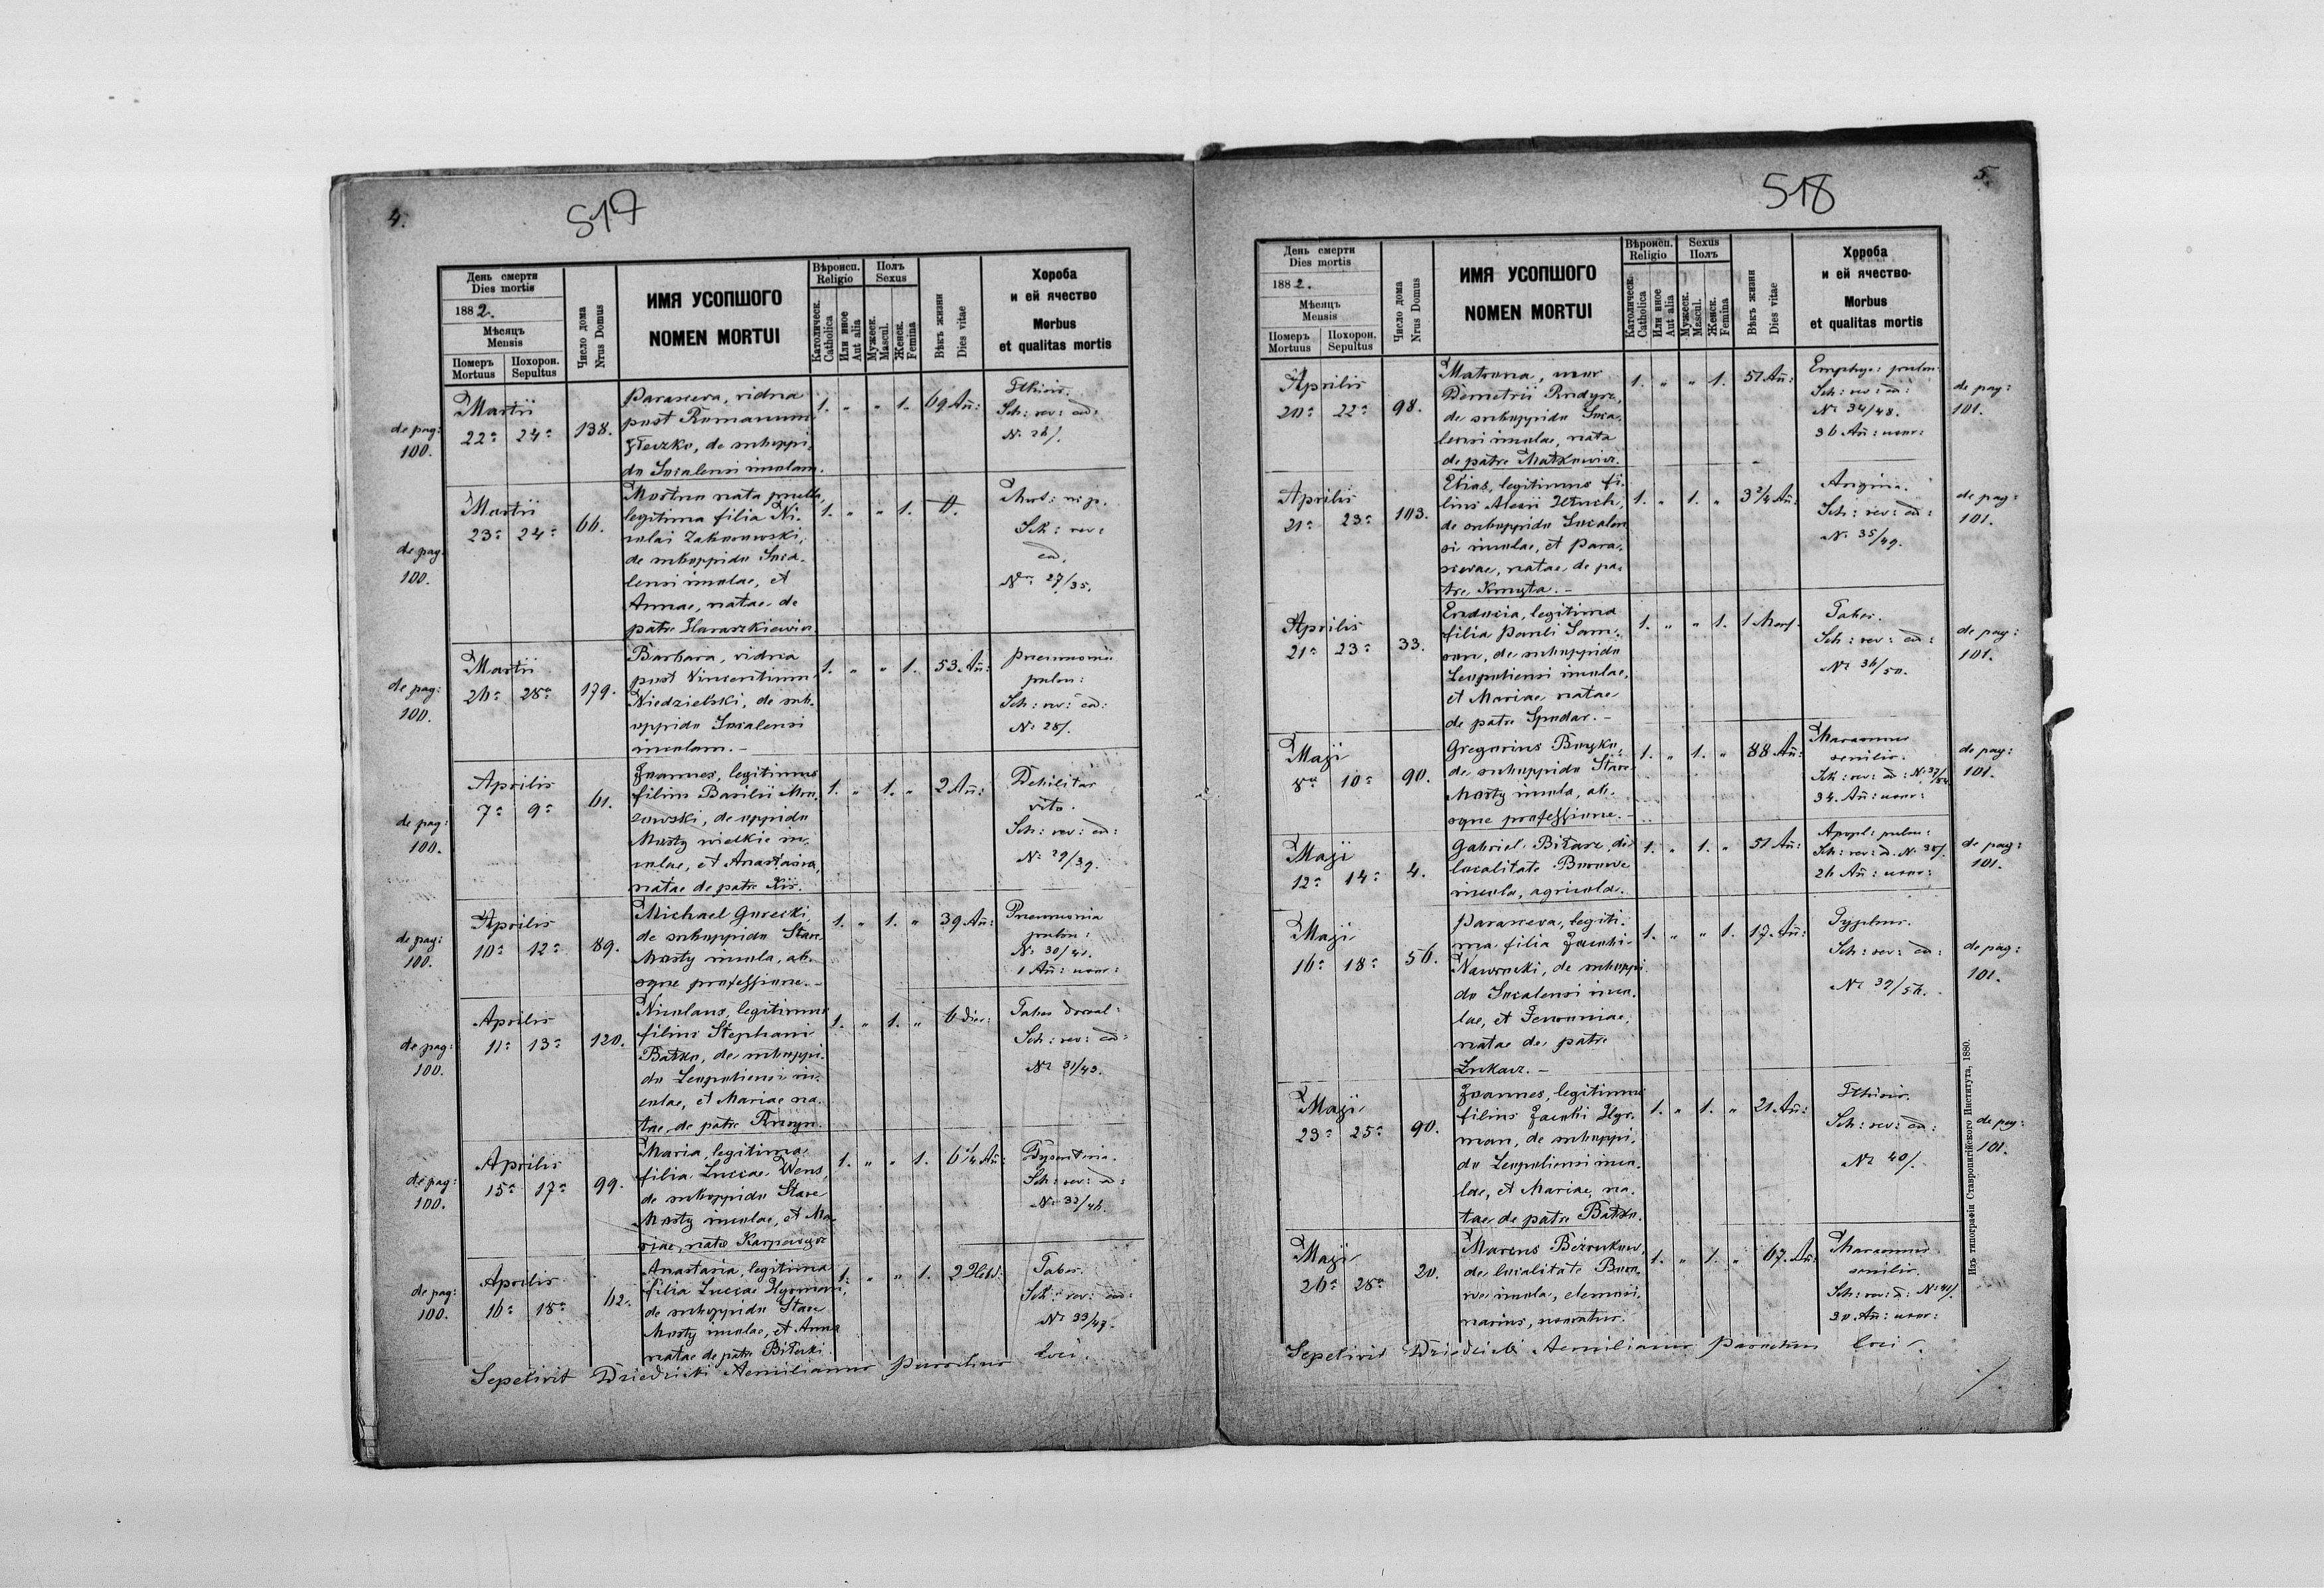 4.
517
День смерти
Dies mortis
1882.
Мѣсяць
Mensis
Померъ
Mortuus
Похорон.
Sepultus
Число дома
Nrus Domus
ИМЯ УСОПШОГО
NOMEN MORTUI
Вѣроисп.
Religio
Католическ.
Catholica
Или иное
Aut alia
Полъ
Sexus
Мужеск.
Mascul.
Женск.
Femina
Вѣкъ жизни
Dies vitae
Хороба
и ей ячество
Morbus
et qualitas mortis
de pag:
100.
Martii
22ª 24ª 138.
Parasceva, vidua
post Romanum
de suboppi-
do Socalensi incolam.
1. " " 1. 69 Añ:
Pthisis.
Sch: rev: ed:
Nº 26/.
de pag:
100.
Martii
23ª 24ª 66.
Mortua nata puella,
legitima filia Ni-
colai Zaborowski,
de suboppido Soca-
lensi incolae, et
Annae, natae de
patre Haraszkiewicz.
1. " " 1. 0.
Sch: rev:
ed.
Nº 27/35.
de pag:
100.
Martii
26ª 28ª 179.
Barbara, vidua
post Vincentium
Niedzielski, de sub-
oppido Socalensi
incolam.-
1. " " 1. 53. Añ:
Pneumonia
pulm:
Sch: rev: ed:
Nº 28/.
de pag:
100.
Aprilis
7ª 9ª 61.
Joannes, legitimus
filius Basilii
de oppido
Mosty wielkie in-
colae, et Anastasiae,
natae de patre Kis.
1. " 1. " 2 Añ:
Debilitas
vito.
Sch: rev: ed:
Nº 29/39.
de pag:
100.
Aprilis
10ª 12ª 89.
Michael Gorecki,
de suboppido Stare
Mosty incola, ab-
sque professione.-
1. " 1. " 39 Añ:
Pneumonia
pulm:
Nº 30/41.
1 Añ: uxor:
de pag:
100.
Aprilis
11ª 13ª 120.
Nicolaus, legitimus
filius Stephani
Batko, de suboppi-
do Leopoliensi in-
colae, et Mariae na-
tae de patre
1. " 1. " 6 dies:
Tabes dorsal:
Sch: rev: ed:
Nº 31/43.
de pag:
100.
Aprilis
15ª 17ª 99.
Maria, legitima
filia Luccae Wens,
de suboppido Stare
Mosty incolae, et Ma-
riae, natae
1. " " 1. 6 1/4 Añ:
Dysenteria.
Sch: rev: ed:
Nº 32/46.
de pag:
100.
Aprilis
16ª 18ª 62.
Anastasia, legitima
filia Luccae Hyrman,
de suboppido Stare
Mosty incolae, et Anna
natae de patre Bilecki.
1. " " 1. 2 Hebd:
Tabes.
Sch: rev: ed:
Nº 33/47.
Sepelivit Dziedzicki Aemilianus parochus loci.
5.
518
День смерти
Dies mortis
1882.
Мѣсяць
Mensis
Померъ
Mortuus
Похорон.
Sepultus
Число дома
Nrus Domus
ИМЯ УСОПШОГО
NOMEN MORTUI
Вѣроисп.
Religio
Католическ.
Catholica
Или иное
Aut alia
Sexus
Полъ
Мужеск.
Mascul.
Женск.
Femina
Вѣкъ жизни
Dies vitae
Хороба
и ей ячество
Morbus
et qualitas mortis
Aprilis
20ª 22ª 98.
Matrona, uxor
Demetrii Rudyk,
de suboppido Soca-
lensi incolae, nata
de patre Matkowicz.
1. " " 1. 51 Añ:
Emphys: pulm:
Sch: rev: ed:
Nº 34/48.
36 Añ: uxor:
de pag:
101.
Aprilis
21ª 23ª 103.
Elias, legitimus fi-
lius Alexii
de suboppido Socalen
si incolae, et Para-
scevae, natae de pa-
tre Kmyta.-
1. " 1. " 3 3/4 Añ:
Angina.
Sch: rev: ed:
Nº 35/49.
de pag:
101.
Aprilis
21ª 23ª 33.
Eudocia, legitima
filia Pauli Sam-
son, de suboppido
Leopoliensi incolae,
et Mariae natae
de patre Spodar.-
1. " " 1. 1 Mens.
Tabes.
Sch: rev: ed:
Nº 36/50.
de pag:
101.
Maji
8ª 10ª 90.
Gregorius Boyko,
de suboppido Stare
Mosty incola, ab-
sque professione.-
1. " 1. " 88 Añ:
Marasmus
senilis.
Sch: rev: ed: Nº 37/54
34. Añ: uxor:
de pag:
101.
Maji
12ª 14ª 4.
Gabriel Bitarz, de
localitate Borowe
incola, agricola.
1. " 1. " 51 Añ:
Apopl: pulm:
Sch: rev: ed. Nº 38/.
26 Añ: uxor:
de pag:
101.
Maji
16ª 18ª 56.
Parasceva, legiti-
ma filia Jacobi
Nawrocki, de suboppi
do Socalensi inco-
lae, et
natae de patre
Łukacz.-
1. " " 1. 17. Añ:
Typhus.
Sch: rev: ed:
Nº 39/56.
de pag:
101.
Maji
23ª 25ª 90.
Joannes, legitimus
filius Jacobi Hyr-
man, de suboppi-
do Leopoliensi inco-
lae, et Mariae, na-
tae de patre Batko.
1. " 1. " 21. Añ:
Pthisis.
Sch: rev: ed:
Nº 40/.
de pag:
101.
Maji
26ª 28ª 20.
Marcus
de localitate Boro-
we incola, elemosi-
narius, uxoratus.
1. " 1. " 67. Añ:
Marasmus
senilis.
Sch: rev: ed: Nº 41/.
30. Añ: uxor:
Sepelivit Dziedzicki Aemilianus parochus loci
Изъ типографіи Ставропигійского Института, 1880.